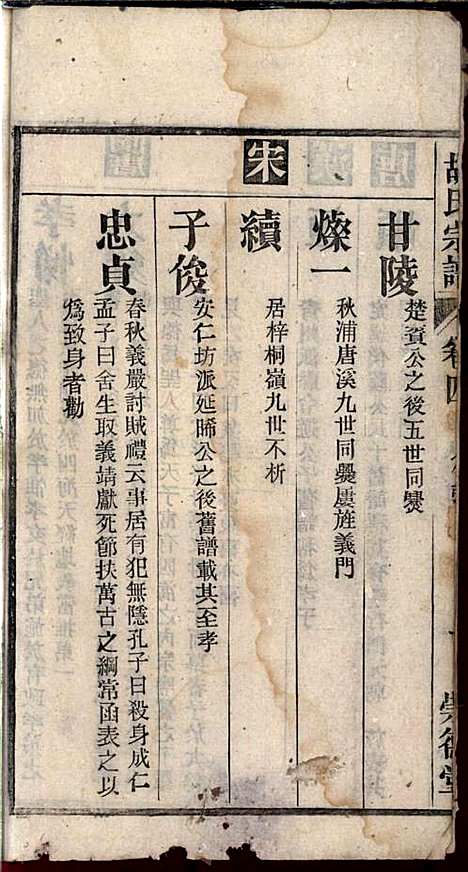 胡氏宗譜
卷四
崇德堂
甘陵
楚賓公之後五世同爨
燦一
秋浦唐溪九世同爨屢旌義門
宋
續
居梓桐嶺九世不析
子俊
安仁坊派延睎公之後舊譜載其至孝
忠貞
春秋義嚴討賊禮云事居有犯無隱孔子曰殺身成仁
孟子曰舍生取義靖獻死節扶萬古之綱常函表之以
爲致身者勸